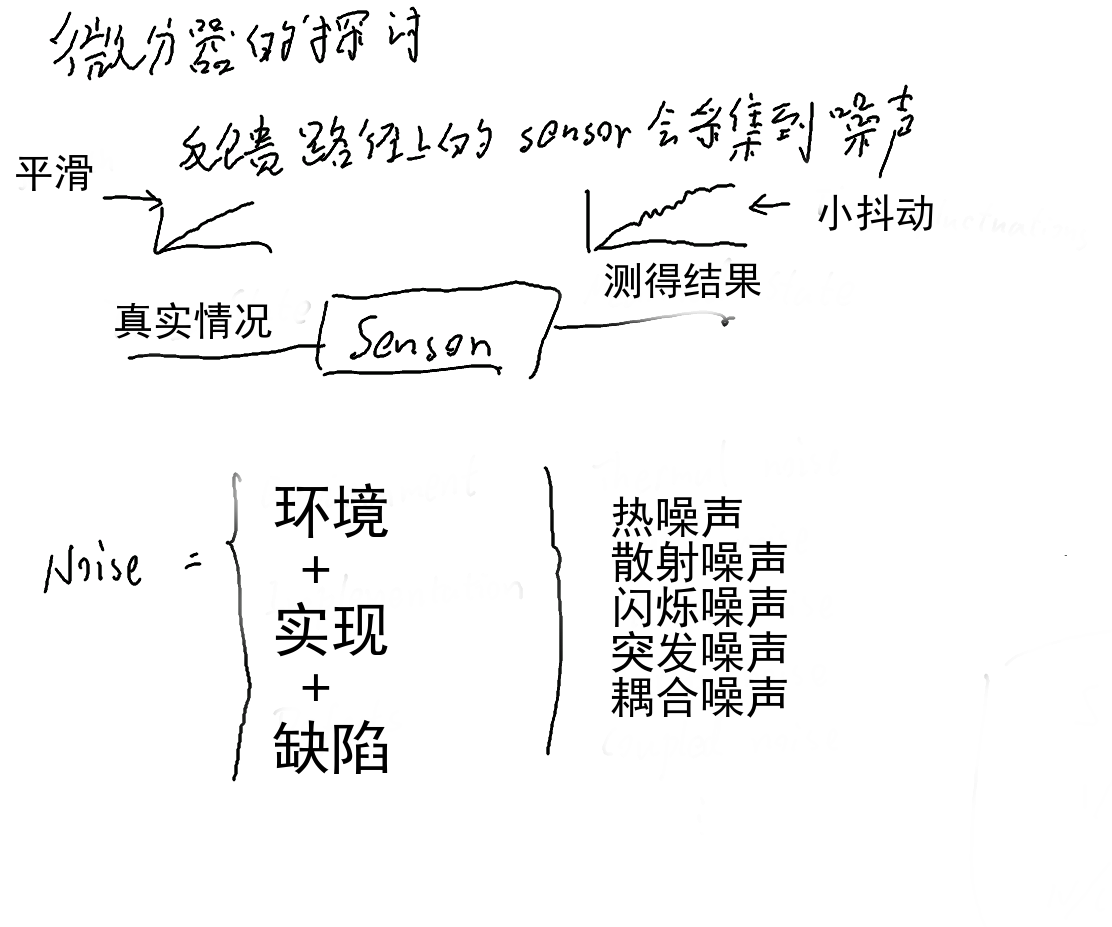 微分器的探讨
反馈路径上的sensor会采集到噪声
平滑
小抖动
测得结果
真实情况
Sensor
Noise =
环境
+
实现
+
缺陷
热噪声
散射噪声
闪烁噪声
突发噪声
耦合噪声